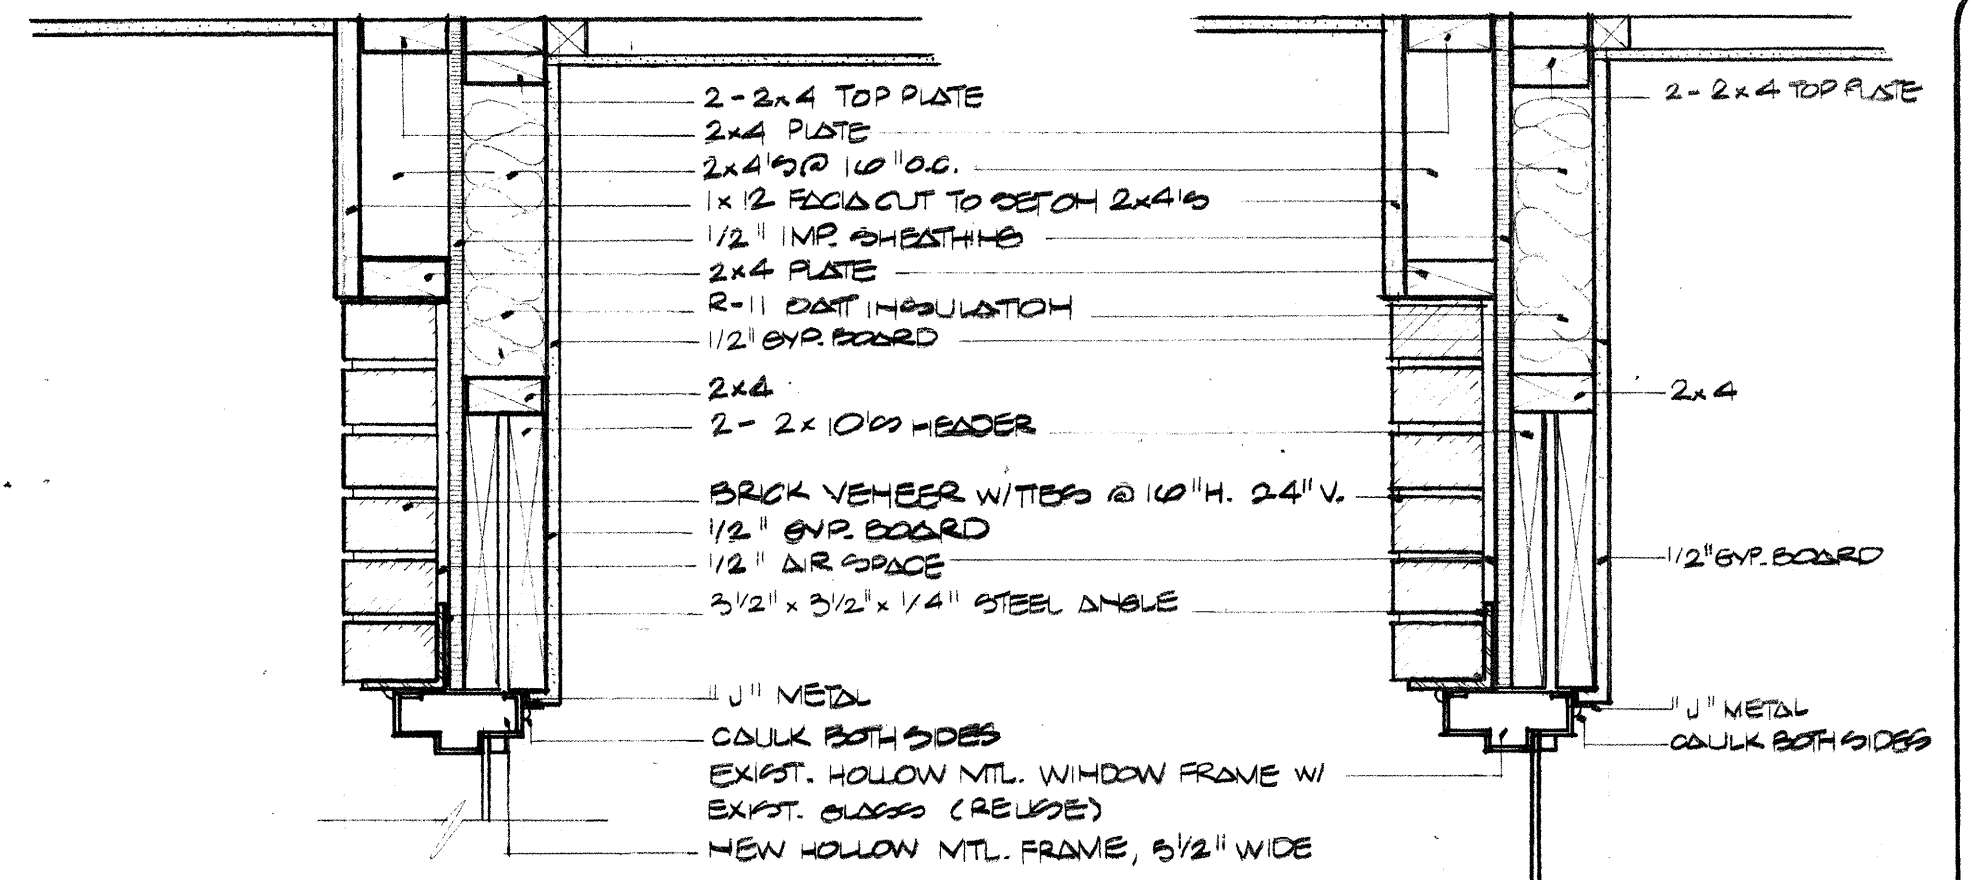 2-2x4 TOP PLATE
2x4 PLATE
2x4'S @ 16" O.C.
1x12 FACIA CUT TO SET ON 2x4'S
1/2" IMP. SHEATHING
2x4 PLATE
R-11 BATT INSULATION
1/2" GYP. BOARD
2x4
2- 2x10'S HEADER
BRICK VENEER W/TIES @ 16"H. 24"V.
1/2" GYP. BOARD
1/2" AIR SPACE
3 1/2" x 3 1/2" x 1/4" STEEL ANGLE
"J" METAL
CAULK BOTH SIDES
EXIST. HOLLOW MTL. WINDOW FRAME W/
EXIST. GLASS (REUSE)
NEW HOLLOW MTL. FRAME, 5 1/2" WIDE
2- 2x4 TOP PLATE
2x4
1/2" GYP. BOARD
"J" METAL
CAULK BOTH SIDES